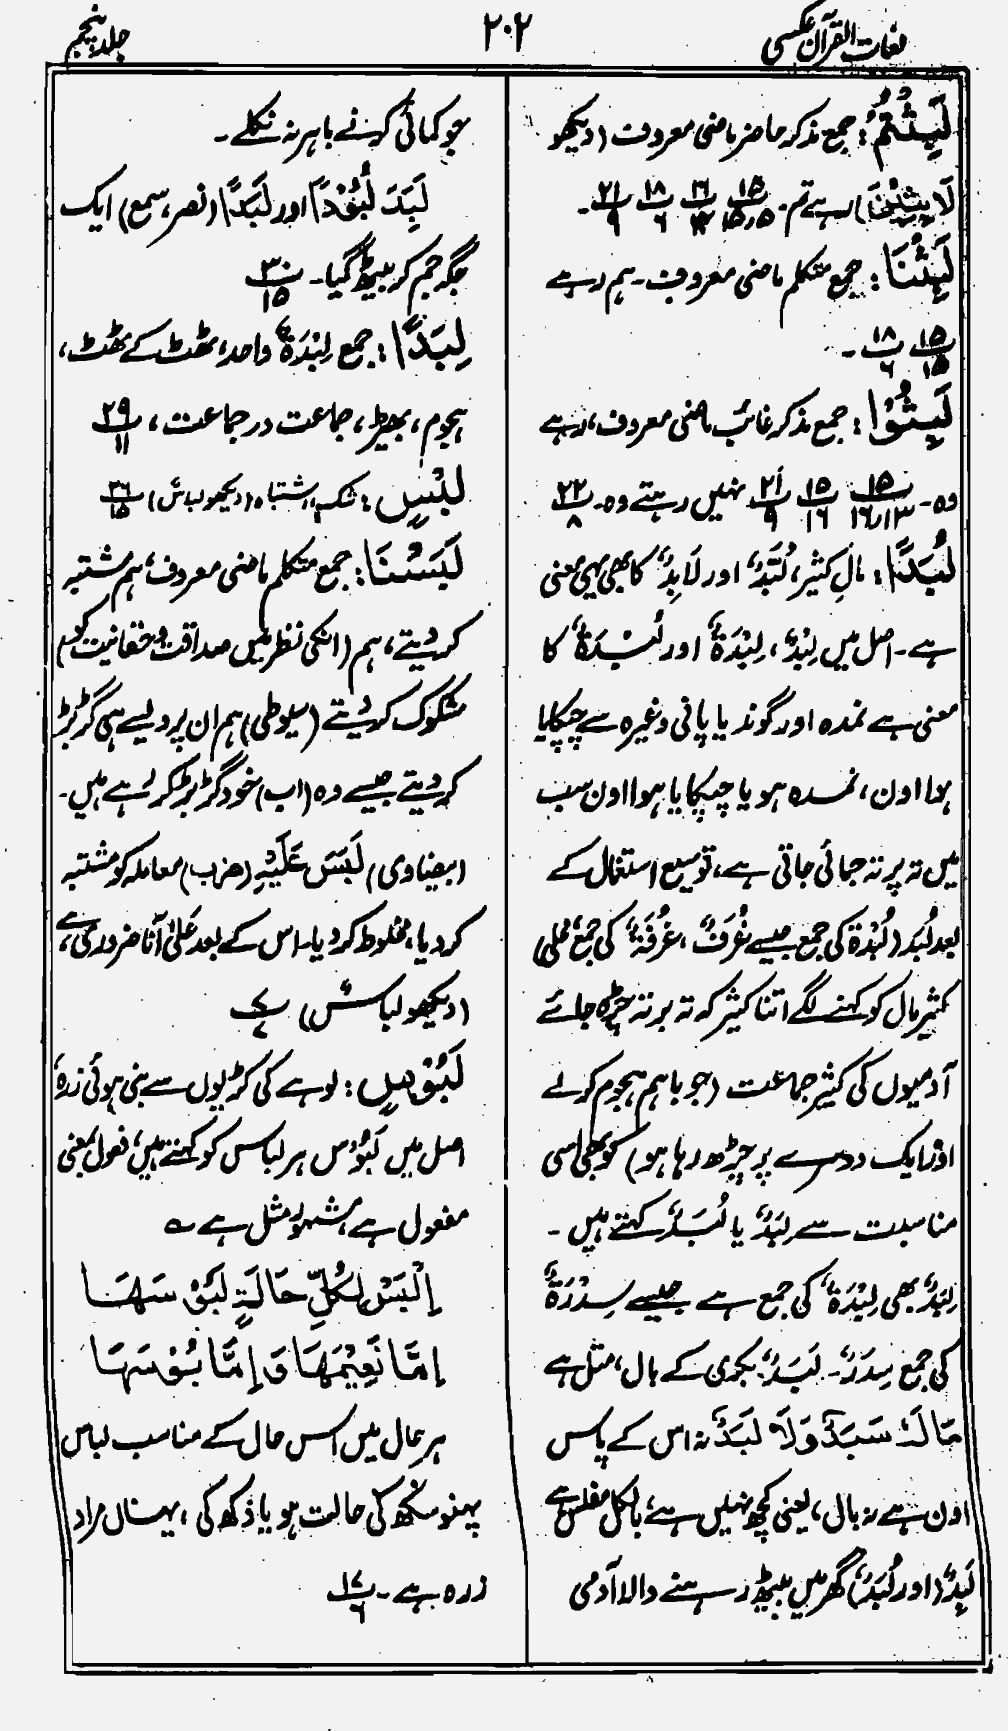 لغات القرآن عکسی
۲۰۲
جلد پنجم
لَبِثْتُمْ: جمع مذکر حاضر ماضی معروف (دیکھو
لَابِثِيْنَ) رہے تم۔ پ۱۵ / ۱۵ پ ۱۸ / ۶ پ۲۱ / ۹ ۔
لَبِثْنَا: جمع متکلم ماضی معروف۔ ہم رہے
پ۱۵ / ۱۵ پ۱۸ / ۶ ۔
لَبِثُوْا: جمع مذکر غائب ماضی معروف، رہے
وہ۔ پ۱۵ / ۱۳ر۱۶ پ۱۵ / ۱۶ پ۲۱ / ۹ نہیں رہتے وہ۔ پ۲۲ / ۸
لُبَدًا: مالِ کثیر، لُبَّدٌ، اور لَابِدٌ، کا بھی یہی معنی
ہے۔ اصل میں لِبْدٌ، لِبْدَةٌ اور لُبْدَةٌ کا
معنی ہے نمدہ اور گوند یا پانی وغیرہ سے چپکایا
ہوا اون، نمدہ ہو یا چپکایا ہوا اون سب
میں تہ پر تہ جمائی جاتی ہے، توسیع استعمال کے
بعد لُبَد (لُبْدَة کی جمع جیسے غُرَفٌ، غُرْفَةٌ کی جمع محلی)
کثیر مال کو کہنے لگے اتنا کثیر کہ تہ بر تہ چڑھ جائے
آدمیوں کی کثیر جماعت (جو باہم ہجوم کرلے
اور ایک دوسرے پر چڑھ رہا ہو) کو بھی اسی
مناسبت سے لِبَدٌ یا لُبَدٌ کہتے ہیں۔
لِبَدٌ بھی لِبْدَةٌ کی جمع ہے جیسے سِدْرَةٌ
کی جمع سِدَرٌ۔ لَبَدٌ: بکری کے بال، مثل ہے
مَالَهٗ سَبَدٌ وَلَا لَبَدٌ نہ اس کے پاس
اون ہے نہ بال، یعنی کچھ نہیں ہے، بالکل مفلس ہے
لَبِدٌ (اور لُبَدٌ) گھر میں بیٹھ رہنے والا آدمی
جو کمائی کرنے باہر نہ نکلے۔
لَبِدَ لُبُوْدًا اور لَبَدًا (نصر، سمع) ایک
جگہ جم کر بیٹھ گیا۔ پ۳۰ / ۱۵
لِبَدًا: جمع لِبْدَةٌ واحد، ٹھٹ کے ٹھٹ،
ہجوم، بھیڑ، جماعت در جماعت، پ۲۹ / ۱۱
لَبْسٍ: شک، اشتباہ (دیکھو لباس) پ۲۶ / ۱۵
لَبَسْنَا: جمع متکلم ماضی معروف، ہم مشتبہ
کر دیتے، ہم (انکی نظر میں صداقت و حقانیت کو)
مشکوک کر دیتے (سیوطی) ہم ان پر ویسے ہی گڑبڑ
کر دیتے جیسے وہ (اب) خود گڑبڑ کر رہے ہیں۔
(بیضاوی) لَبَسَ عَلَيْهِ (ضرب) معاملہ کو مشتبہ
کر دیا، مخلوط کر دیا۔ اس کے بعد عَلیٰ آنا ضروری ہے،
(دیکھو لباس) پ۷ / ۷
لَبُوْسٍ: لوہے کی کڑیوں سے بنی ہوئی زرہ
اصل میں لَبُوْس ہر لباس کو کہتے ہیں، فعول بمعنی
مفعول ہے، مشہور مثل ہے ؎
اِلْبَسْ لِكُلِّ حَالَةٍ لَبُوْسَهَا
اِمَّا نَعِيْمَهَا وَاِمَّا بُؤْسَهَا
ہر حال میں اس حال کے مناسب لباس
پہنو سکھ کی حالت ہو یا دکھ کی، یہاں مراد
زرہ ہے۔ پ۱۷ / ۶